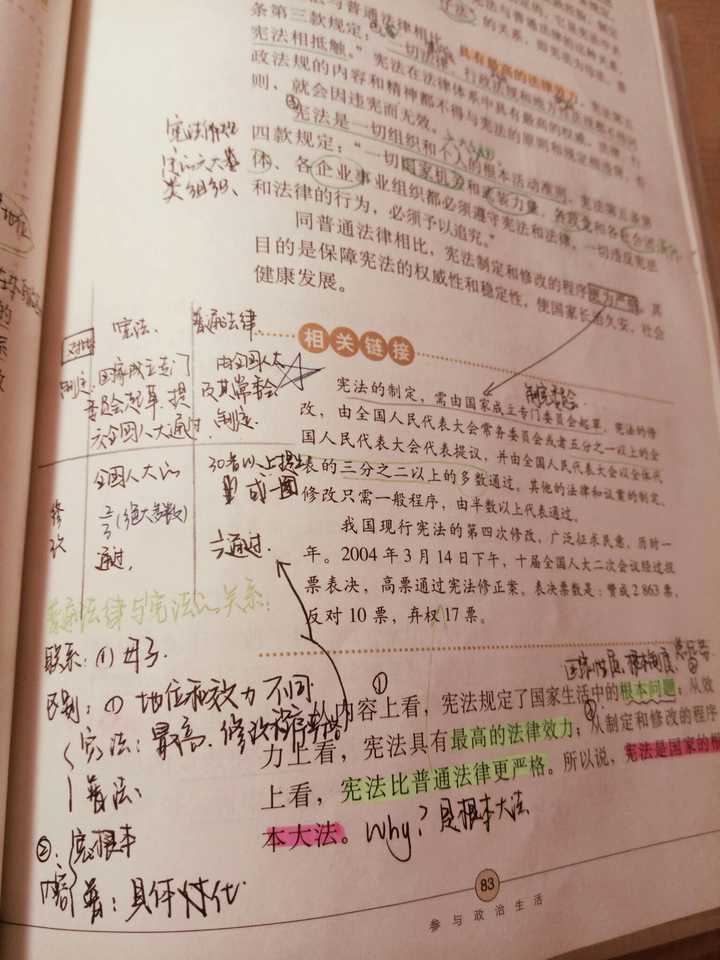 法与普通法律相比，具有最高的法律效力。宪法第五
条第三款规定：“一切法律、行政法规和地方性法规都不得同
宪法相抵触。”宪法在法律体系中具有最高的权威，法律、
政法规的内容和精神都不得与宪法的原则和规定相违背，否
则，就会因违宪而无效。
③宪法是一切组织和个人的根本活动准则。宪法第五条第
四款规定：“一切国家机关和武装力量、各政党和各社会团
体、各企业事业组织都必须遵守宪法和法律。一切违反宪法
和法律的行为，必须予以追究。”
同普通法律相比，宪法制定和修改的程序更为严格，其
目的是保障宪法的权威性和稳定性，使国家长治久安，社会
健康发展。
相关链接
宪法的制定，需由国家成立专门委员会起草。宪法的修
改，由全国人民代表大会常务委员会或者五分之一以上的全
国人民代表大会代表提议，并由全国人民代表大会以全体代
表的三分之二以上的多数通过。其他的法律和议案的制定、
修改只需一般程序，由半数以上代表通过。
我国现行宪法的第四次修改，广泛征求民意，历时一
年。2004 年 3 月 14 日下午，十届全国人大二次会议经过投
票表决，高票通过宪法修正案。表决票数是：赞成 2 863 票，
反对 10 票，弃权 17 票。
宪法、 普通法律
对比
制定 国家成立专门 由全国人大
委员会起草，提 及其常委会
交全国人大通过 制定
全国人大以
修改 2/3 (绝大多数)
通过，
通过.
普通法律与宪法的关系：
联系：(1) 母子
区别：① 地位和效力不同
宪法：最高.修改程序
普法：
②：宪：根本
内容 普：具体化
国家性质、根本制度、
①内容上看，宪法规定了国家生活中的根本问题；从效
力上看，宪法具有最高的法律效力；从制定和修改的程序
上看，宪法比普通法律更严格。所以说，宪法是国家的根
本大法。 Why？是根本大法
83
参与政治生活